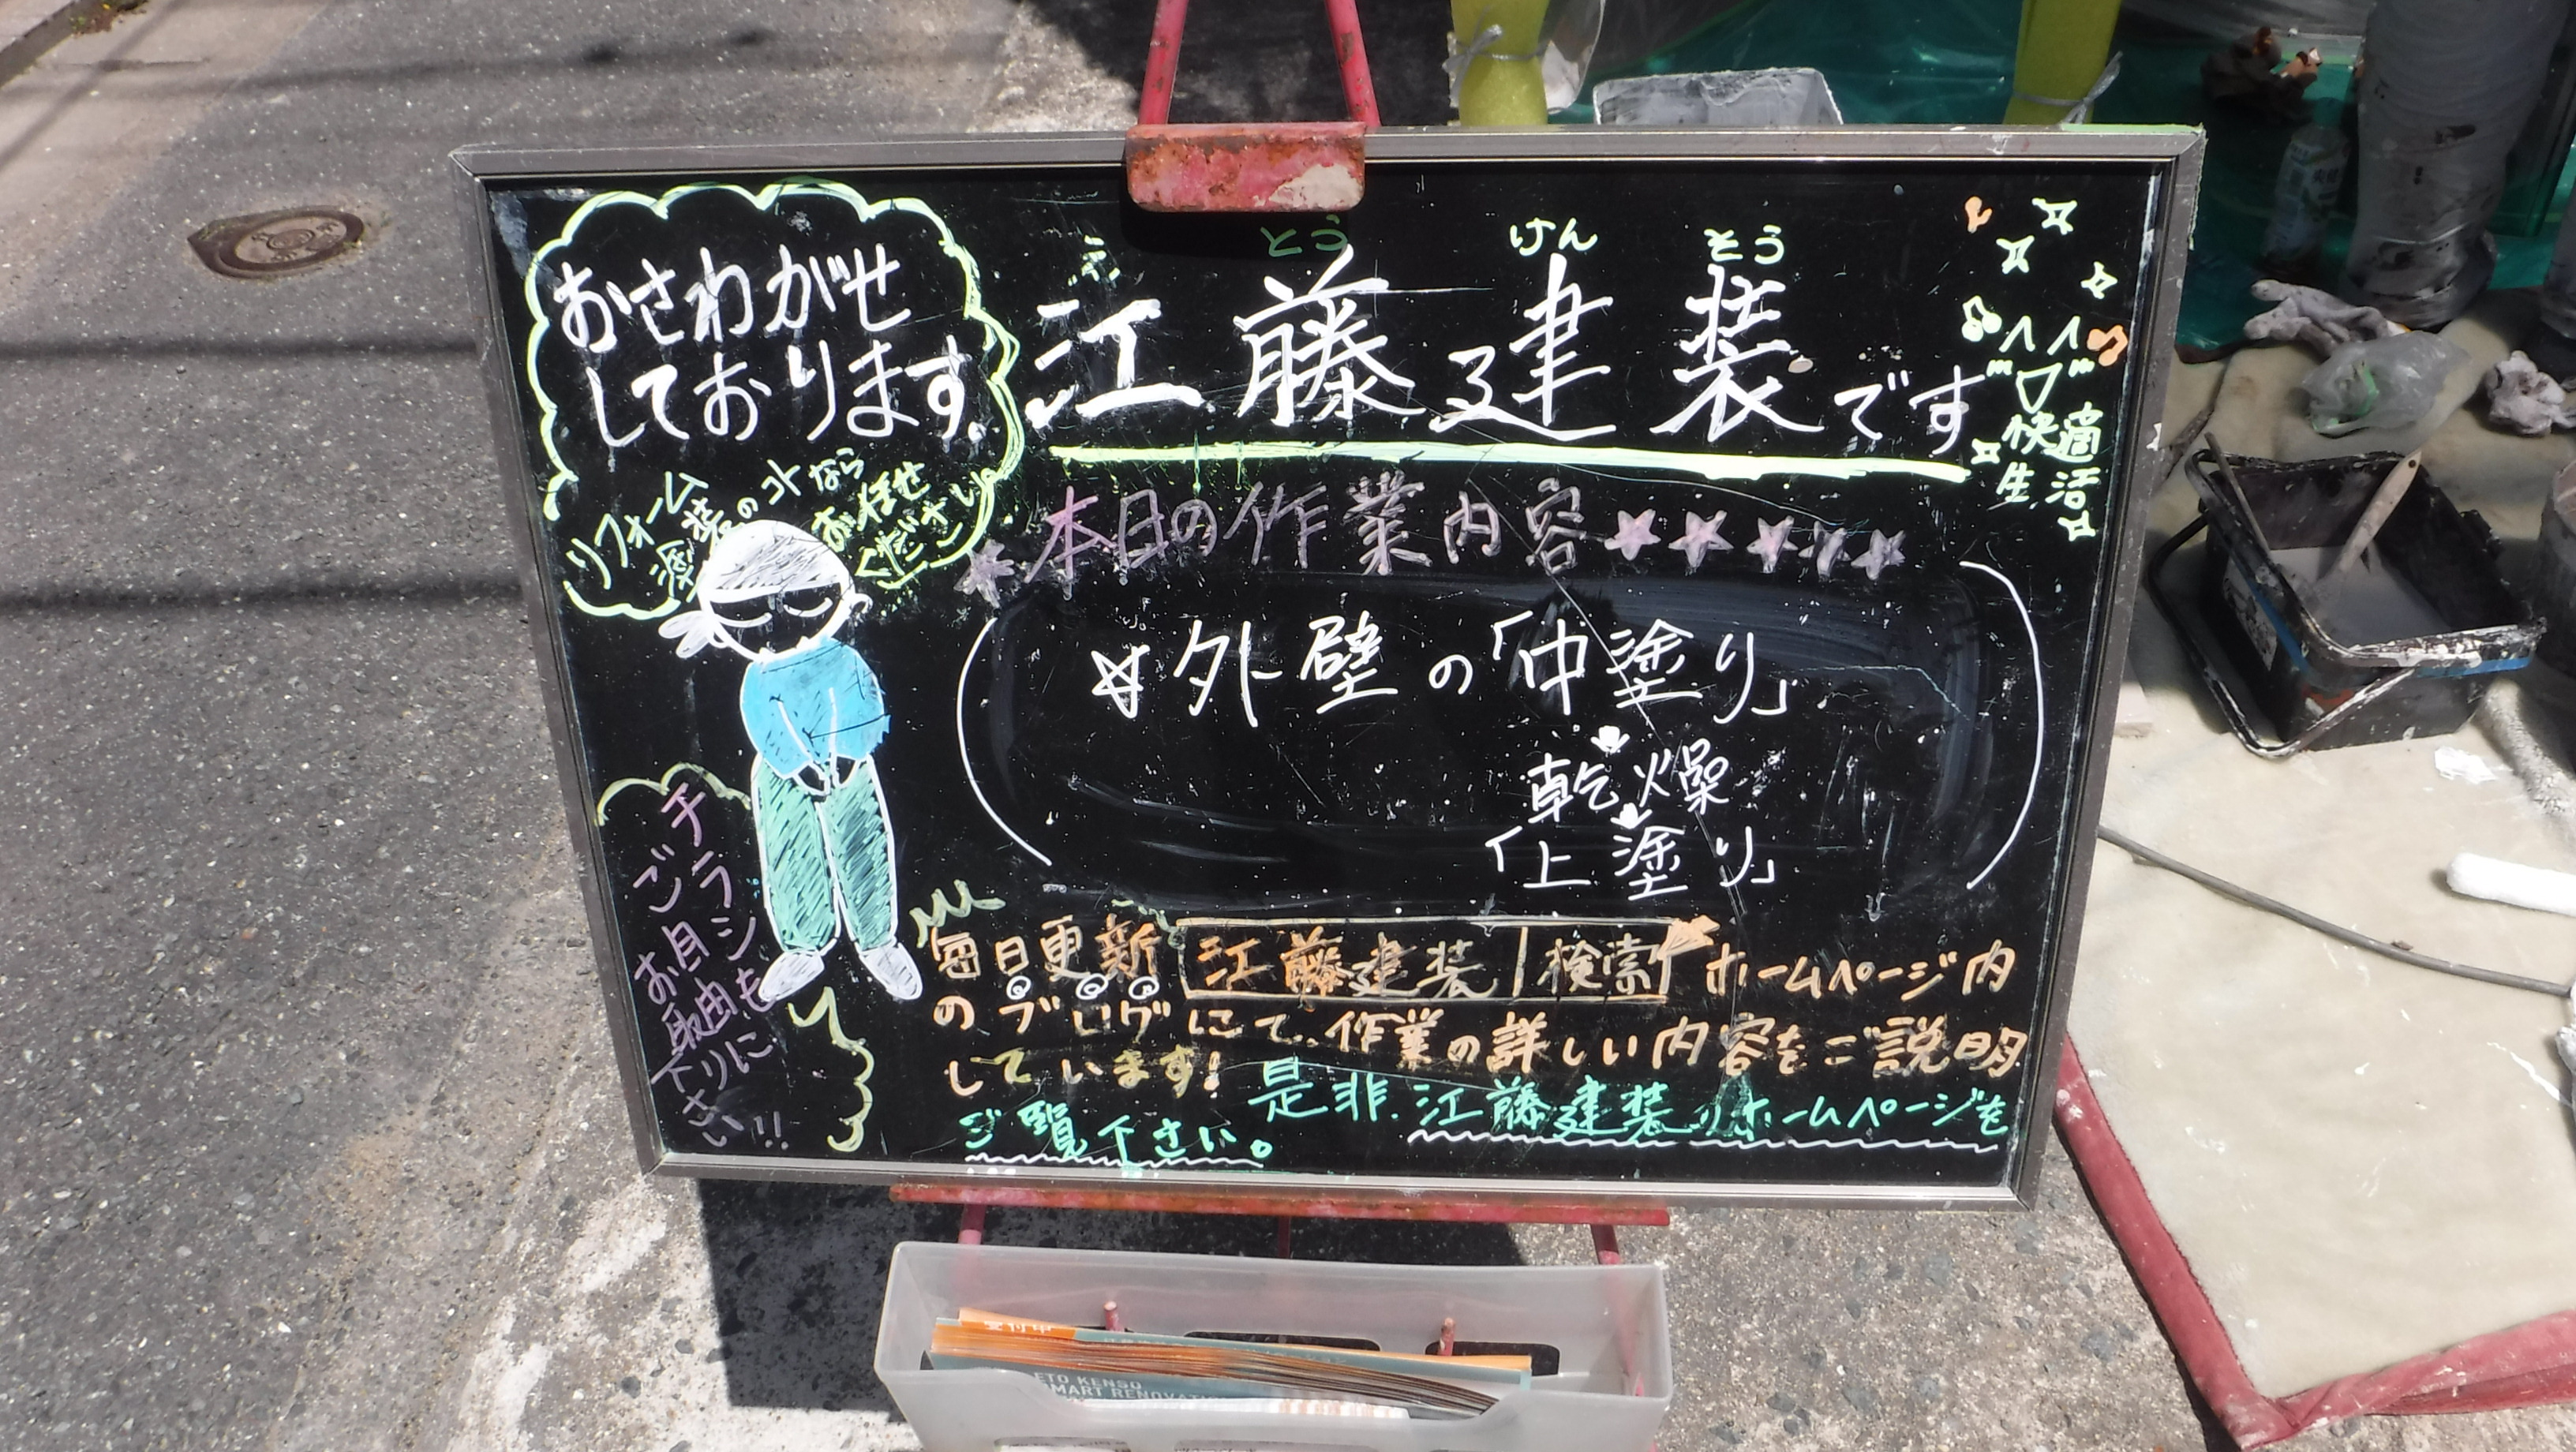 おさわがせ
しております。
リフォーム
塗装のコトなら
お任せ
ください
え とう けん そう
江藤建装です
快適
生活
本日の作業内容
外壁の「中塗り」
乾燥
「上塗り」
チラシも
ご自由に
お取り
下さい!!
毎日更新 江藤建装 検索 ホームページ内
のブログにて、作業の詳しい内容をご説明
しています! 是非、江藤建装のホームページを
ご覧下さい。
受付中
ETO KENSO
SMART RENOVATION